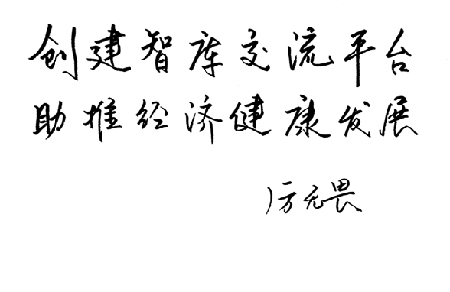 创建智库交流平台
助推经济健康发展
厉无畏